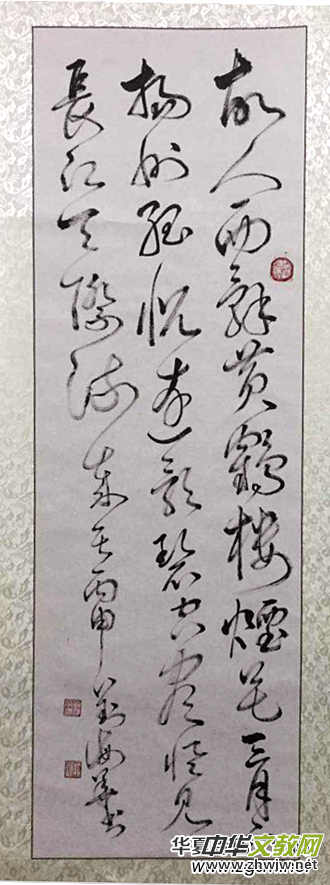 故人西辭黄鶴樓煙花三月下
揚州孤帆遠影碧空盡惟見
長江天際流 丙申
华夏中华文教网
www.zghwjw.net